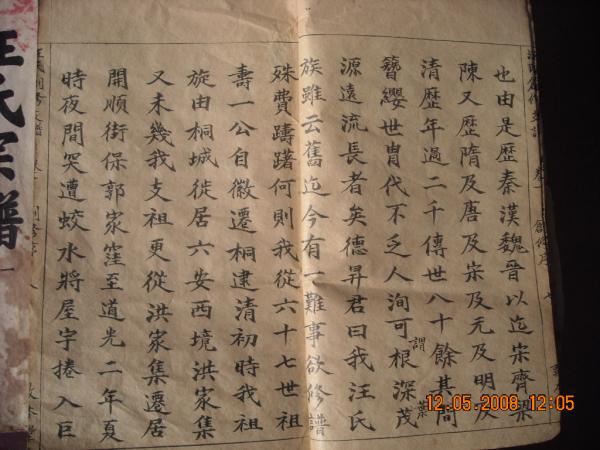 也由是歷秦漢魏晉以迄宋齊梁
陳又歷隋及唐及宋及元及明及
清歷年過二千傳世八十餘其間
簪纓世胄代不乏人洵可謂根深茂葉
源遠流長者矣德昇君曰我汪氏
族雖云舊迄今有一難事欲修譜
殊費躊躇何則我從六十七世祖
壽一公自徽遷桐逮清初時我祖
旋由桐城徙居六安西境洪家集
又未幾我支祖更從洪家集遷居
開順街保郭家窪至道光二年夏
時夜間突遭蛟水將屋宇捲入巨
汪氏宗譜
12.05.2008 12:05